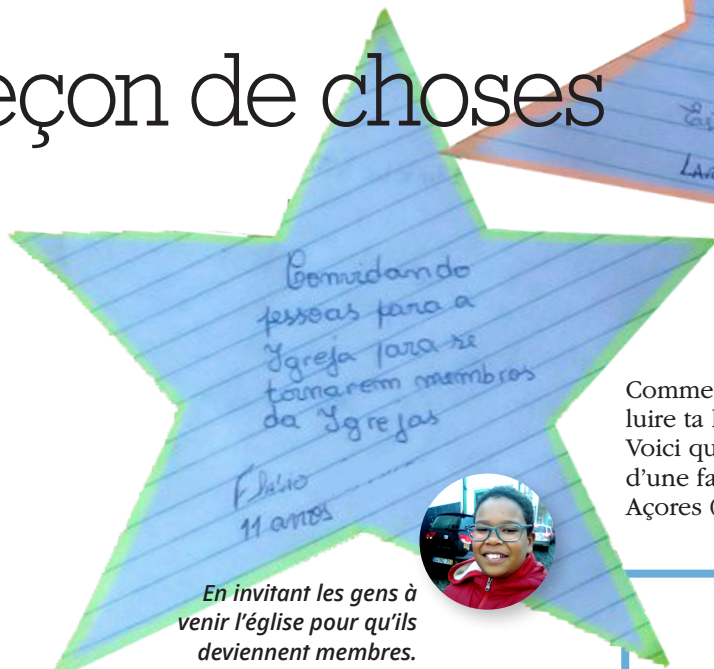 eçon de choses
Convidando
pessoas para a
Igreja para se
tornarem membros
da Igrejas
Flávio
11 anos
En invitant les gens à
venir l'église pour qu'ils
deviennent membres.
Comme
luire ta
Voici qu
d'une fa
Açores